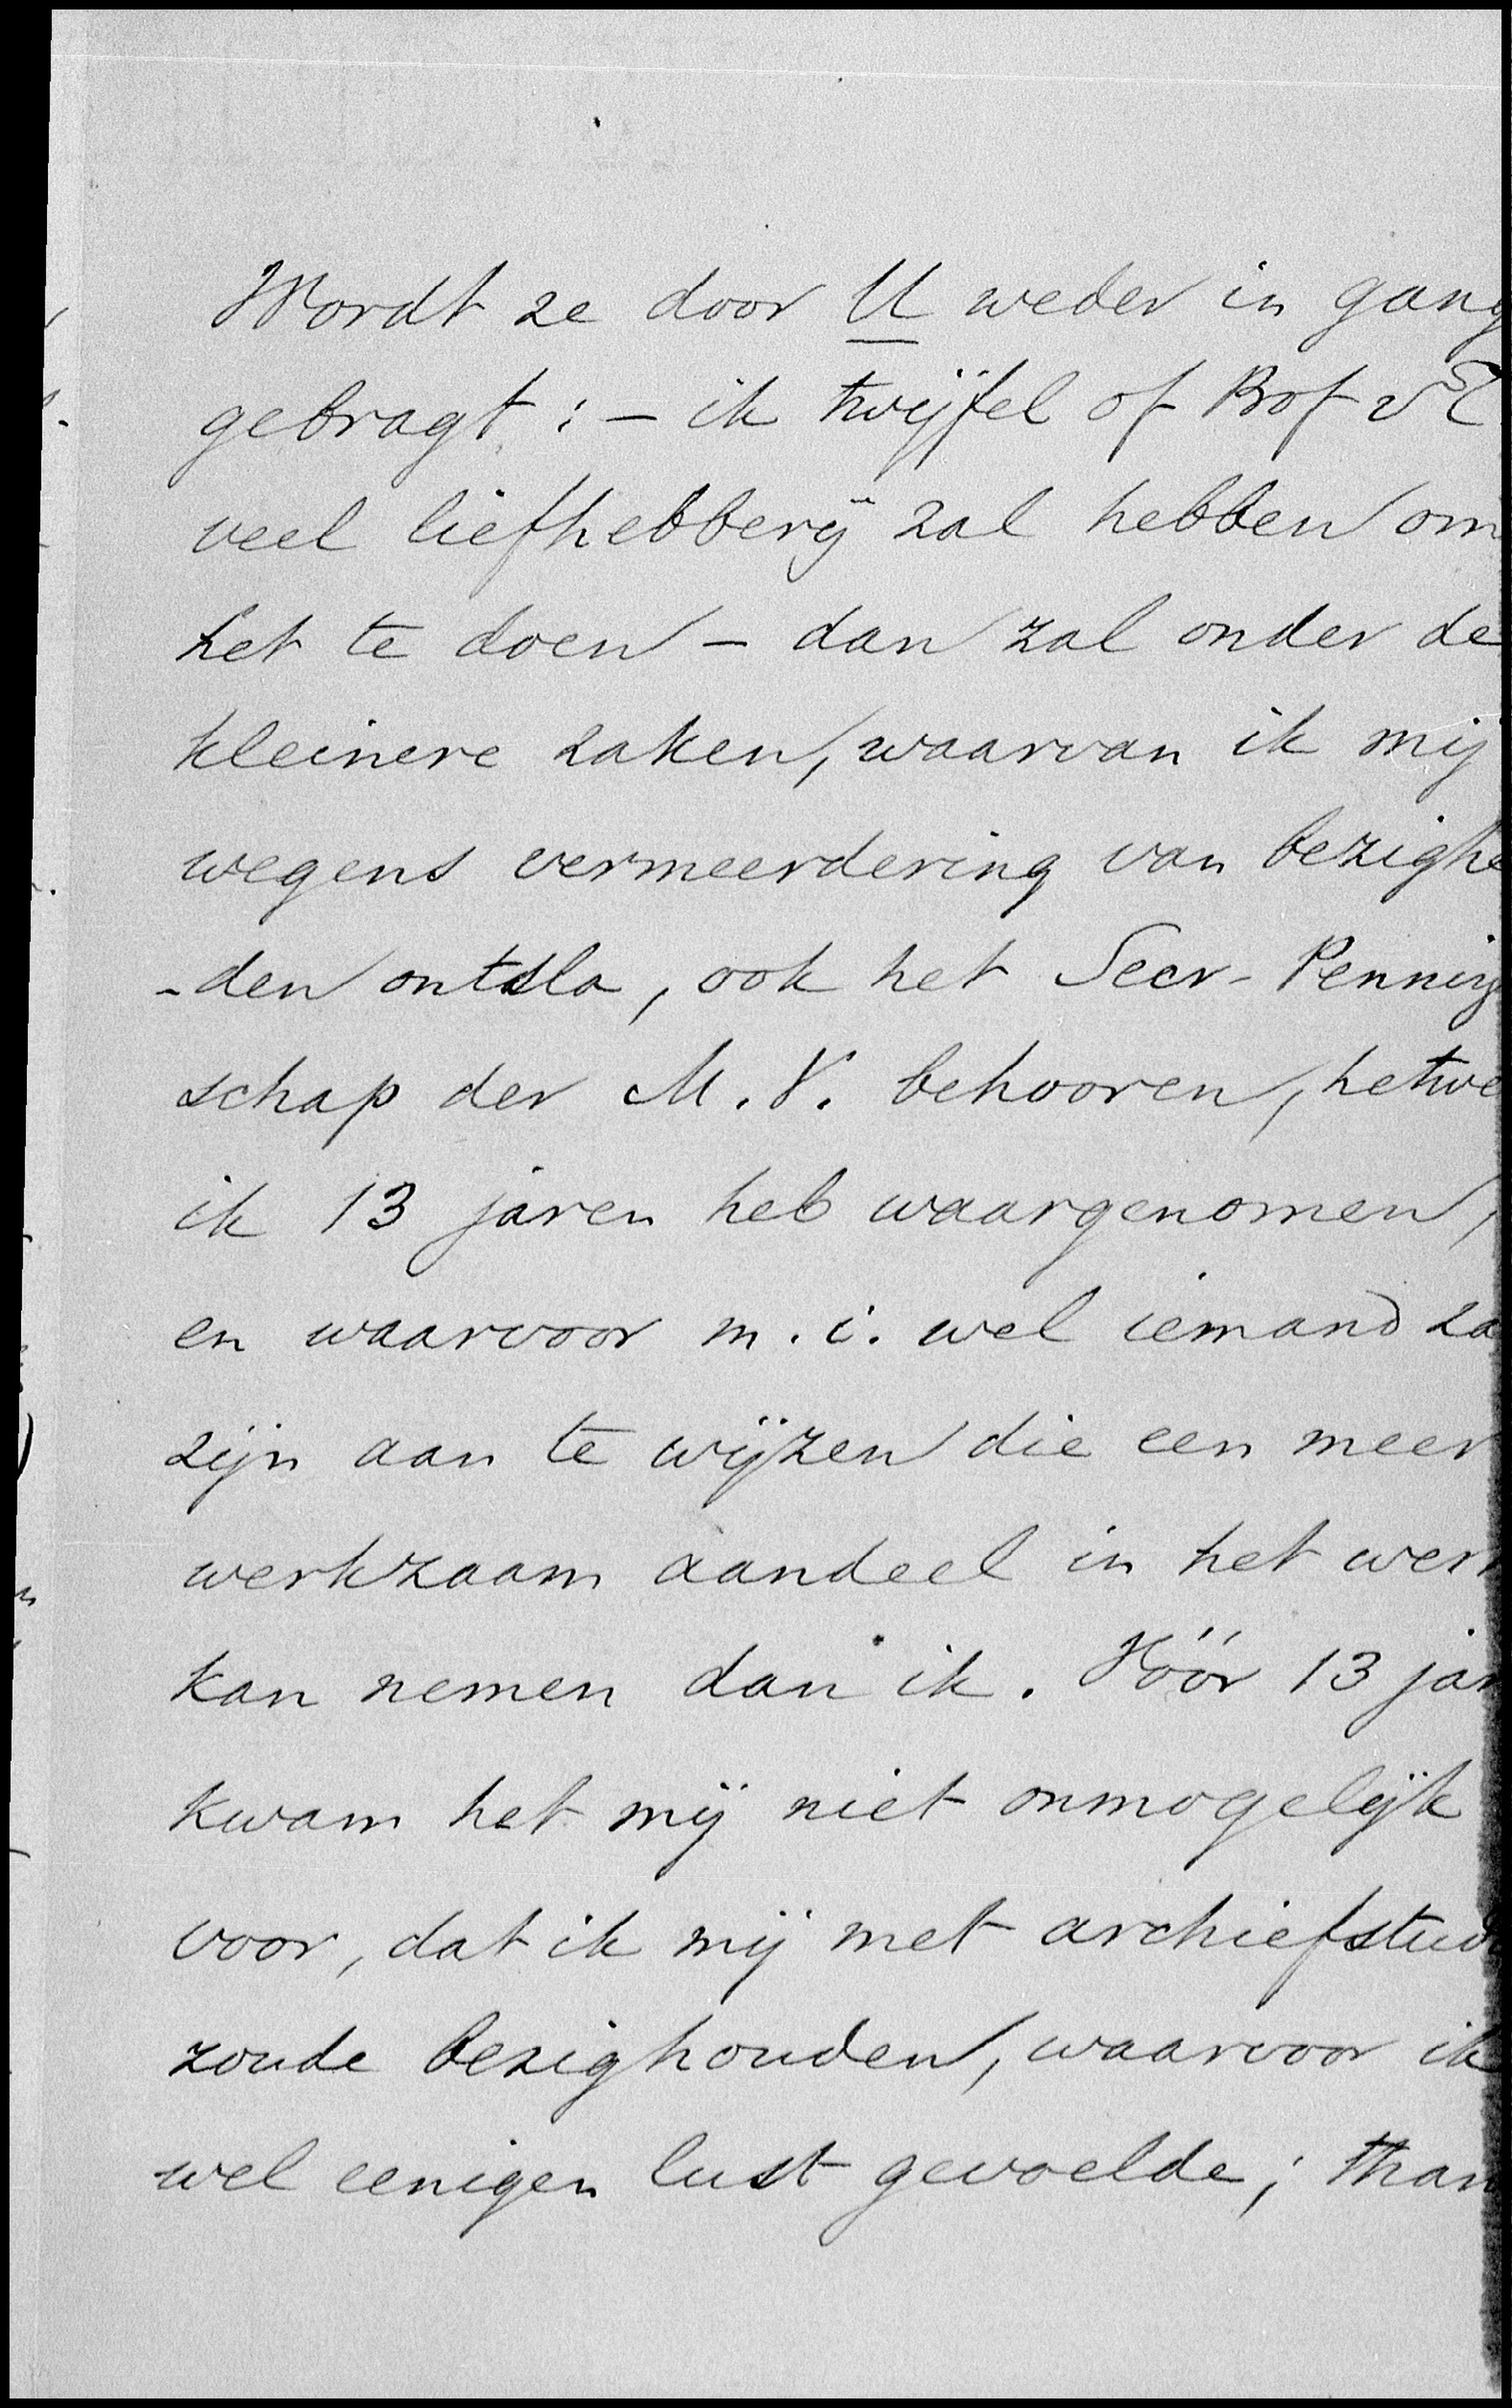 Wordt ze door U weder in gang
gebragt: – ik twijfel of Prof v E
veel liefhebberij zal hebben om
het te doen – dan zal onder de
kleinere zaken, waarvan ik mij
wegens vermeerdering van bezighe
-den ontsla, ook het Secr- Penning
schap der M. V. behooren, hetwe
ik 13 jaren heb waargenomen,
en waarvoor m. i. wel iemand za
zijn aan te wijzen die een meer
werkzaam aandeel in het werk
kan nemen dan ik. Vóór 13 jar
kwam het mij niet onmogelijk
voor, dat ik mij met archiefstud
zoude bezighouden, waarvoor ik
wel eenigen lust gevoelde; than